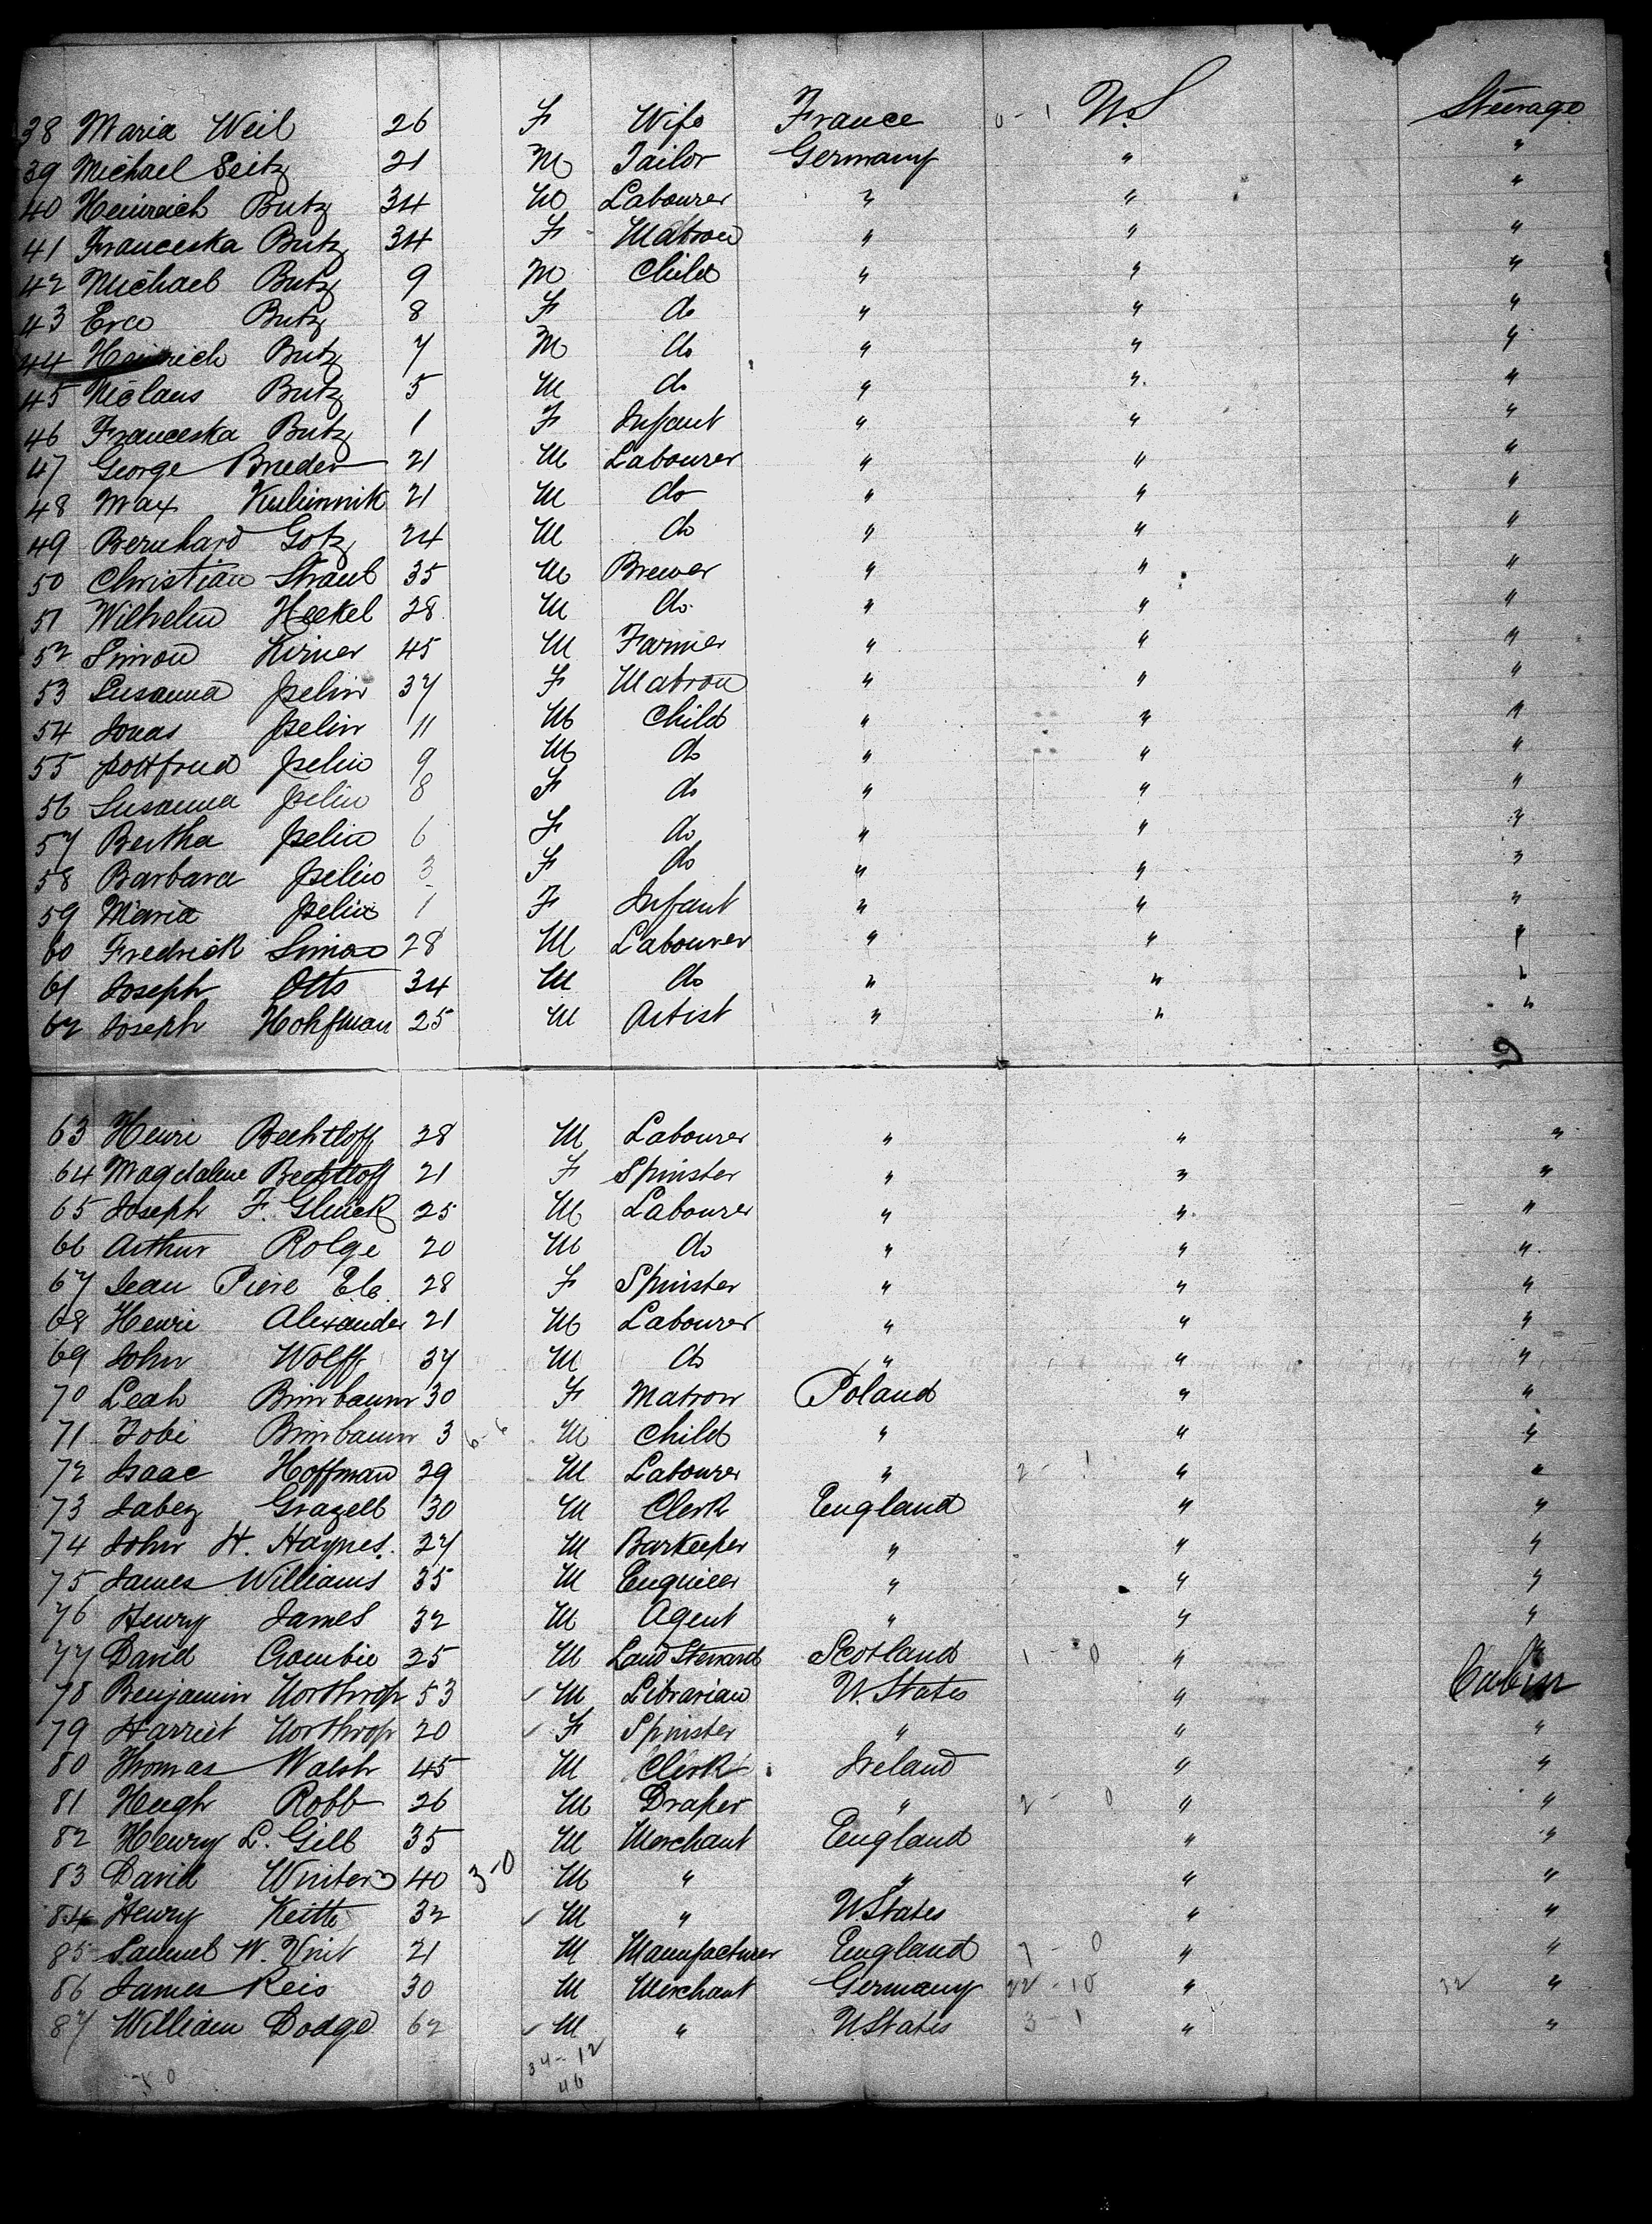 38 Maria Weil 26 F Wife France 0-1 U.S Steerage
39 Michael Seitz 21 M Tailor Germany " "
40 Heinrich Butz 34 M Labourer " " "
41 Franceska Butz 34 F Matron " " "
42 Michael Butz 9 M Child " " "
43 Butz 8 F do " " "
44 Heinrich Butz 7 M do " " "
45 Niclaus Butz 5 M do " " "
46 Franceska Butz 1 F Infant " " "
47 George Brueder 21 M Labourer " " "
48 Max 21 M do " " "
49 Bernhard Gotz 24 M do " " "
50 Christian Straub 35 M Brewer " " "
51 Wilhelm Heckel 28 M do " " "
52 Simon Kirner 45 M Farmer " " "
53 Susanna Iselin 37 F Matron " " "
54 Jonas Iselin 11 M Child " " "
55 Gottfried Iselin 9 M do " " "
56 Susanna Iselin 8 F do " " "
57 Bertha Iselin 6 F do " " "
58 Barbara Iselin 3 F do " " "
59 Maria Iselin 1 F Infant " " "
60 Fredrick Simon 28 M Labourer " " "
61 Joseph Otto 34 M do " " "
62 Joseph Hohfman 25 M Artist " " "
63 Henri Bechtloff 28 M Labourer " " "
64 Magdalene Bechtloff 21 F Spinster " " "
65 Joseph F. Gluick 25 M Labourer " " "
66 Arthur Rolge 20 M do " " "
67 Jean Piere 28 F Spinster " " "
68 Henri Alexander 21 M Labourer " " "
69 John Wolff 37 M do " " "
70 Leah Birnbaum 30 F Matron Poland " "
71 Tobi Birnbaum 3 6-6 M Child " " "
72 Isaac Hoffman 29 M Labourer " 2-1 " "
73 Jabez Grazell 30 M Clerk England " "
74 John H. Haynes. 27 M Barkeeper " " "
75 James Williams 35 M Engineer " " "
76 Henry James 32 M Agent " " "
77 David Crombie 25 M Land Steward Scotland 1-0 "
78 Benjamin Northrop 53 M Librarian U. States " Cabin
79 Harriet Northrop 20 F Spinster " " "
80 Thomas Walsh 45 M Clerk Ireland " "
81 Hugh Robb 26 M Draper " 2-0 " "
82 Henry L. Gill 35 M Merchant England " "
83 David Winter 40 3-0 M " " " "
84 Henry Keith 32 M " U.States " "
85 Samuel W. 21 M Manufacturer England 7-0 " "
86 James Reis 30 M Merchant Germany 22-10 " 32 "
87 William Dodge 62 M " U.States 3-1 " "
34-12
46